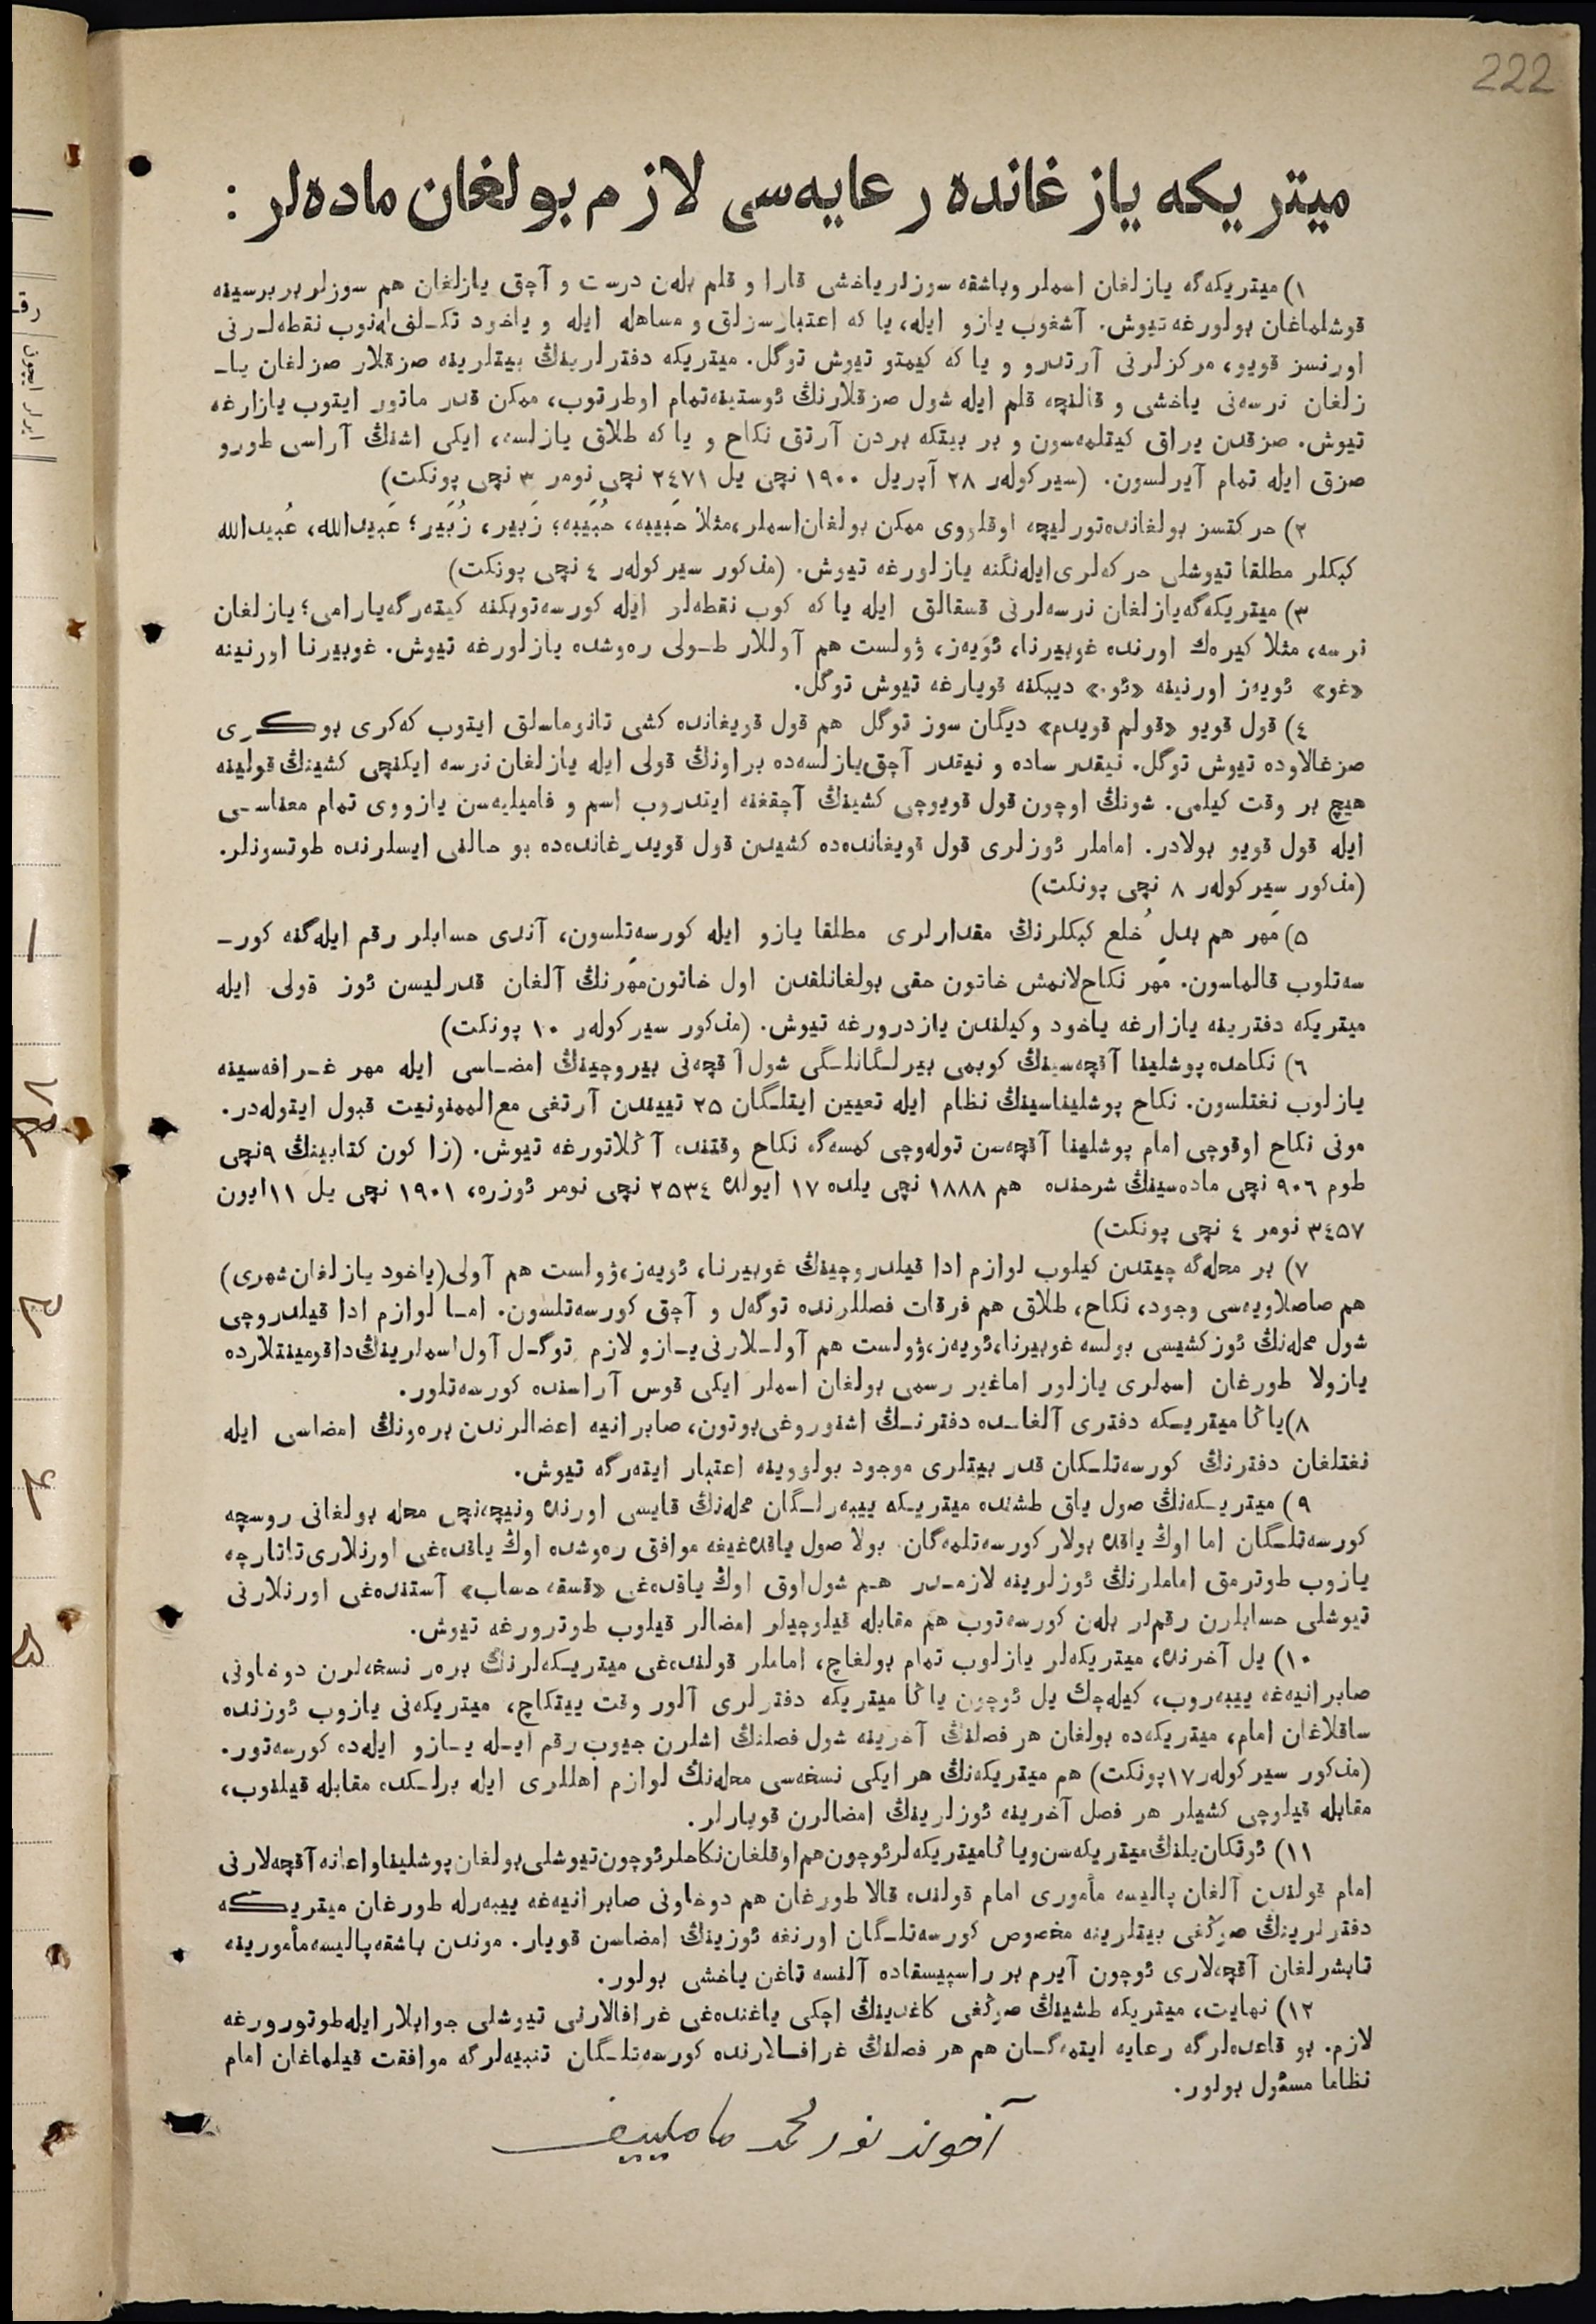 222
میتریكه یازغانده رعایه‌سی لازم بولغان ماده‌لر :
۱) میتریكه‌گه یازلغان اسملر وباشقه سوزلر یاخشی قارا و قلم بله‌ن درست و آچق یازلغان هم سوزلر بربرسینه
قوشلماغان بولورغه تیوش. آشغوب یازو ایله، یا كه اعتبارسزلق و مساهله ایله و یاخود تكلف له‌نوب نقطه‌لرنی
اورنسز قویو، مركزلرنی آرتدرو و یا كه كیمتو تیوش توگل. میتریكه دفترلرینڭ بیتلرینه صزقلار صزلغان یا-
زلغان نرسه‌نی یاخشی و قالنچه قلم ایله شول صزقلارنڭ ئوستینه تمام اوطرتوب، ممكن قدر ماتور ایتوب یازارغه
تیوش. صزقدن یراق كیتلمه‌سون و بر بیتكه بردن آرتق نكاح و یا كه طلاق یازلسه، ایكی اشنڭ آراسی طورو
صزق ایله تمام آیرلسون. (سیركوله‌ر ۲۸ آپریل ۱۹۰۰ نچی یل ۲٤۷۱ نچی نومر ۳ نچی پونكت)
۲) حركتسز بولغانده تورلیچه اوقلووی ممكن بولغان اسملر، مثلا حَبیبه، حُبَیبه؛ زَبیر، زُبَیر؛ عَبیدالله، عُبیدالله
كبكلر مطلقا تیوشلی حركه‌لری ایله‌نگنه یازلورغه تیوش. (مذكور سیركوله‌ر ٤ نچی پونكت)
۳) میتریكه‌گه یازلغان نرسه‌لرنی قسقالق ایله یا كه كوب نقطه‌لر ایله كورسه‌توبكنه كیته‌رگه یارامی؛ یازلغان
نرسه، مثلا كیره‌ك اورنده غوبیرنا، ئویه‌ز، ۋولست هم آوللار طولی ره‌وشده یازلورغه تیوش. غوبیرنا اورنینه
«غو» ئویه‌ز اورنینه «ئو.» دیبكنه قویارغه تیوش توگل.
٤) قول قویو «قولم قویدم» دیگان سوز توگل هم قول قویغانده كشی تانوماسلق ایتوب كه‌كری بوكری
صزغالاوده تیوش توگل. نیقدر ساده و نیقدر آچق یازلسه‌ده براونڭ قولی ایله یازلغان نرسه ایكنچی كشینڭ قولینه
هیچ بر وقت كیلمی. شونڭ اوچون قول قویوچی كشینڭ آچقغنه ایتدروب اسم و فامیلیه‌سن یازووی تمام معناسی
ایله قول قویو بولادر. اماملر ئوزلری قول قویغانده‌ده كشیدن قول قویدرغانده‌ده بو حالنی ایسلرنده طوتسونلر.
(مذكور سیركوله‌ر ۸ نچی پونكت)
۵) مَهر هم بدلِ خُلع كبكلرنڭ مقدارلری مطلقا یازو ایله كورسه‌تلسون، آندی حسابلر رقم ایله‌گنه كور-
سه‌تلوب قالماسون. مَهر نكاحلانمش خاتون حقی بولغانلقدن اول خاتون مهرنڭ آلغان قدرلیسن ئوز قولی ایله
میتریكه دفترینه یازارغه یاخود وكیلندن یازدرورغه تیوش. (مذكور سیركوله‌ر ۱۰ پونكت)
٦) نكاحده پوشلینا آقچه‌سینڭ كوبمی بیرلگانلگی شول آقچه‌نی بیروچینڭ امضاسی ایله مهر غرافه‌سینه
یازلوب نغتلسون. نكاح پوشلیناسینڭ نظام ایله تعیین ایتلگان ۲۵ تییندن آرتغی مع الممنونیت قبول ایتوله‌در.
مونی نكاح اوقوچی امام پوشلینا آقچه‌سن توله‌وچی كمسه‌گه نكاح وقتنده آڭلاتورغه تیوش. (زاكون كتابینڭ ۹نچی
طوم ۹۰٦ نچی ماده‌سینڭ شرحنده هم ۱۸۸۸ نچی یلده ۱۷ ایولده ۲۵۳٤ نچی نومر ئوزره، ۱۹۰۱ نچی یل ۱۱ایون
۳٤۵۷ نومر ٤ نچی پونكت)
۷) بر محله‌گه چیتدن كیلوب لوازم ادا قیلدروچینڭ غوبیرنا، ئویه‌ز، ۋولست هم آولی(یاخود یازلغان شهری)
هم صاصلاویه‌سی وجود، نكاح، طلاق هم فرقات فصللرنده توگه‌ل و آچق كورسه‌تلسون. اما لوازم ادا قیلدروچی
شول محله‌نڭ ئوز كشیسی بولسه غوبیرنا، ئویه‌ز، ۋولست هم آوللارنی یازو لازم توگل آول اسملرینڭ داقومینتلارده
یازولا طورغان اسملری یازلور اماغیر رسمی بولغان اسملر ایكی قوس آراسنده كورسه‌تلور.
۸) یاڭا میتریكه دفتری آلغانده دفترنڭ اشنوروغی بوتون، صابرانیه اعضالرندن بره‌ونڭ امضاسی ایله
نغتلغان دفترنڭ كورسه‌تلكان قدر بیتلری موجود بولووینه اعتبار ایته‌رگه تیوش.
۹) میتریكه‌نڭ صول یاق طشنده میتریكه ییبه‌رلگان محله‌نڭ قایسی اورنده ونیچه‌نچی محله بولغانی روسچه
كورسه‌تلگان اما اوڭ یاقده بولار كورسه‌تلمه‌گان. بولا صول یاقده‌غیغه موافق ره‌وشده اوڭ یاقده‌غی اورنلاری تاتارچه
یازوب طوترمق اماملرنڭ ئوزلرینه لازمدر هم شول‌اوق اوڭ یاقده‌غی «قسقه حساب» آستنده‌غی اورنلارنی
تیوشلی حسابلرن رقملر بله‌ن كورسه‌توب هم مقابله قیلوچیلر امضالر قیلوب طوترورغه تیوش.
۱۰) یل آخرنده، میتریكه‌لر یازلوب تمام بولغاچ، اماملر قولنده‌غی میتریكه‌لرنڭ بره‌ر نسخه‌لرن دوخاونی
صابرانیه‌غه ییبه‌روب، كیله‌چك یل ئوچون یاڭا میتریكه دفترلری آلور وقت ییتكاچ، میتریكه‌نی یازوب ئوزنده
ساقلاغان امام، میتریكه‌ده بولغان هر فصلنڭ آخرینه شول فصلنڭ اشلرن جیوب رقم ایله یازو ایله‌ده كورسه‌تور.
(مذكور سیركوله‌ر ۱۷پونكت) هم میتریكه‌نڭ هر ایكی نسخه‌سی محله‌نڭ لوازم اهللری ایله برلكده مقابله قیلنوب،
مقابله قیلوچی كشیلر هر فصل آخرینه ئوزلرینڭ امضالرن قویارلر.
۱۱) ئوتكان یلنڭ میتریكه‌سن ویاڭا میتریكه‌لر ئوچون هم اوقلغان نكاحلر ئوچون تیوشلی بولغان پوشلینا واعانه آقچه‌لارنی
امام قولندن آلغان پالیسه مأموری امام قولنده قالا طورغان هم دوخاونی صابرانیه‌غه ییبه‌رله طورغان میتریكه
دفترلرینڭ صوڭغی بیتلرینه مخصوص كورسه‌تلگان اورنغه ئوزینڭ امضاسن قویار. موندن باشقه پالیسه مأمورینه
تابشرلغان آقچه‌لاری ئوچون آیرم بر راسپیسقاده آلنسه تاغن یاخشی بولور.
۱۲) نهایت، میتریكه طشینڭ صوڭغی كاغدینڭ اچكی یاغنده‌غی غرافالارنی تیوشلی جوابلار ایله طوتورورغه
لازم. بو قاعده‌لرگه رعایه ایتمه‌گان هم هر فصلنڭ غرافالارنده كورسه‌تلگان تنبیه‌لرگه موافقت قیلماغان امام
نظاما مسئول بولور.
آخوند نورمحمد ماملییف